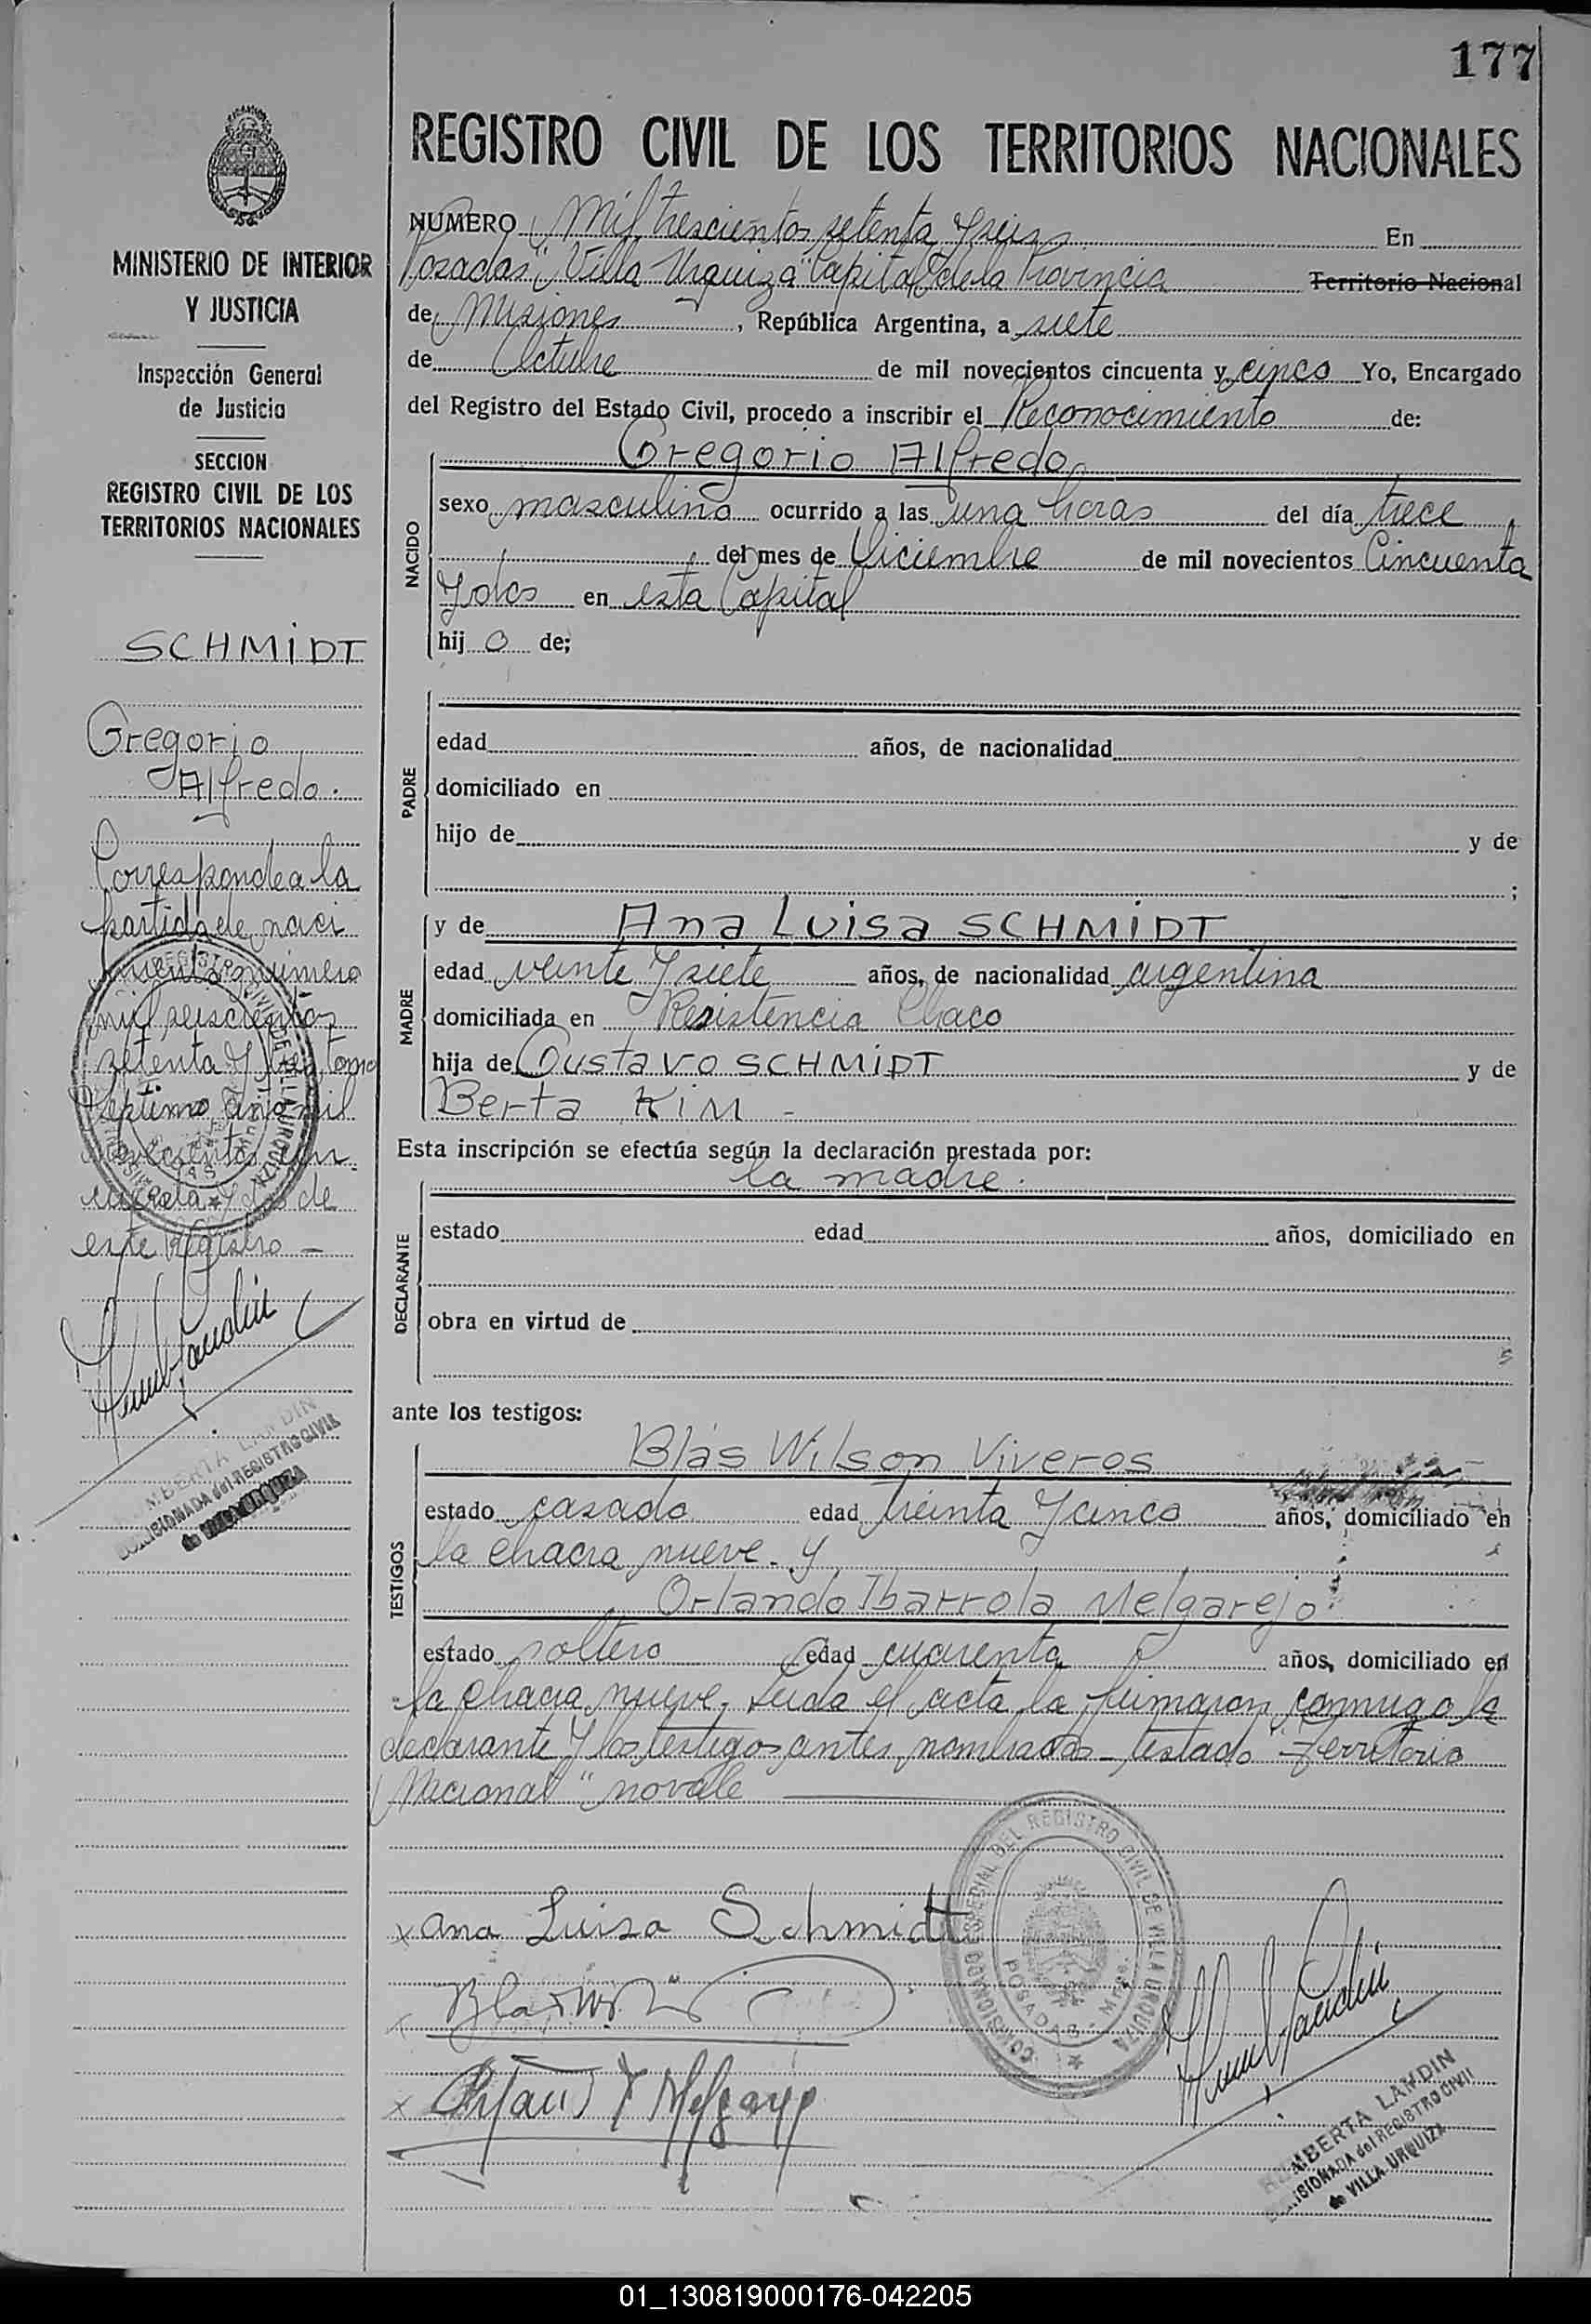 177
REGISTRO CIVIL DE LOS TERRITORIOS NACIONALES
NUMERO Mil trescientos setenta y seis En
Posadas "Villa Urquiza" Capital de la Provincia Territorio Nacional
de Misiones, República Argentina, a siete
de Octubre de mil novecientos cincuenta y cinco Yo, Encargado
del Registro del Estado Civil, procedo a inscribir el Reconocimiento de:
NACIDO
Gregorio Alfredo
sexo masculino ocurrido a las una horas del día trece
del mes de Diciembre de mil novecientos Cincuenta
y dos en esta Capital
hijo de;
PADRE
edad años, de nacionalidad
domiciliado en
hijo de y de
;
MADRE
y de Ana Luisa SCHMIDT
edad veinte y siete años, de nacionalidad argentina
domiciliada en Resistencia Chaco
hija de Gustavo SCHMIDT y de
Berta KIM -
Esta inscripción se efectúa según la declaración prestada por:
DECLARANTE
la madre.
estado edad años, domiciliado en
obra en virtud de
ante los testigos:
TESTIGOS
Blás Wilson Viveros
estado casado edad treinta y cinco años, domiciliado en
la chacra nueve. y
Orlando Ibarrola Melgarejo
estado soltero edad cuarenta años, domiciliado en
la chacra nueve. Leida el acta la firmaron conmigo la
declarante y los testigos antes nombrados - testado "Territorio
Nacional" no vale
x Ana Luisa Schmidt
COMISION ESPECIAL DEL REGISTRO CIVIL DE VILLA URQUIZA
POSADAS - Mnes.
HUMBERTA LANDIN
COMISIONADA del REGISTRO CIVIL
de VILLA URQUIZA
MINISTERIO DE INTERIOR
Y JUSTICIA
Inspección General
de Justicia
SECCION
REGISTRO CIVIL DE LOS
TERRITORIOS NACIONALES
SCHMIDT
Gregorio
Alfredo.
Corresponde a la
partida de naci
miento número
mil seiscientos
setenta y tomo
septimo, año mil
novecientos cin
cuenta y dos de
este Registro -
HUMBERTA LANDIN
COMISIONADA del REGISTRO CIVIL
de VILLA URQUIZA
01_130819000176-042205